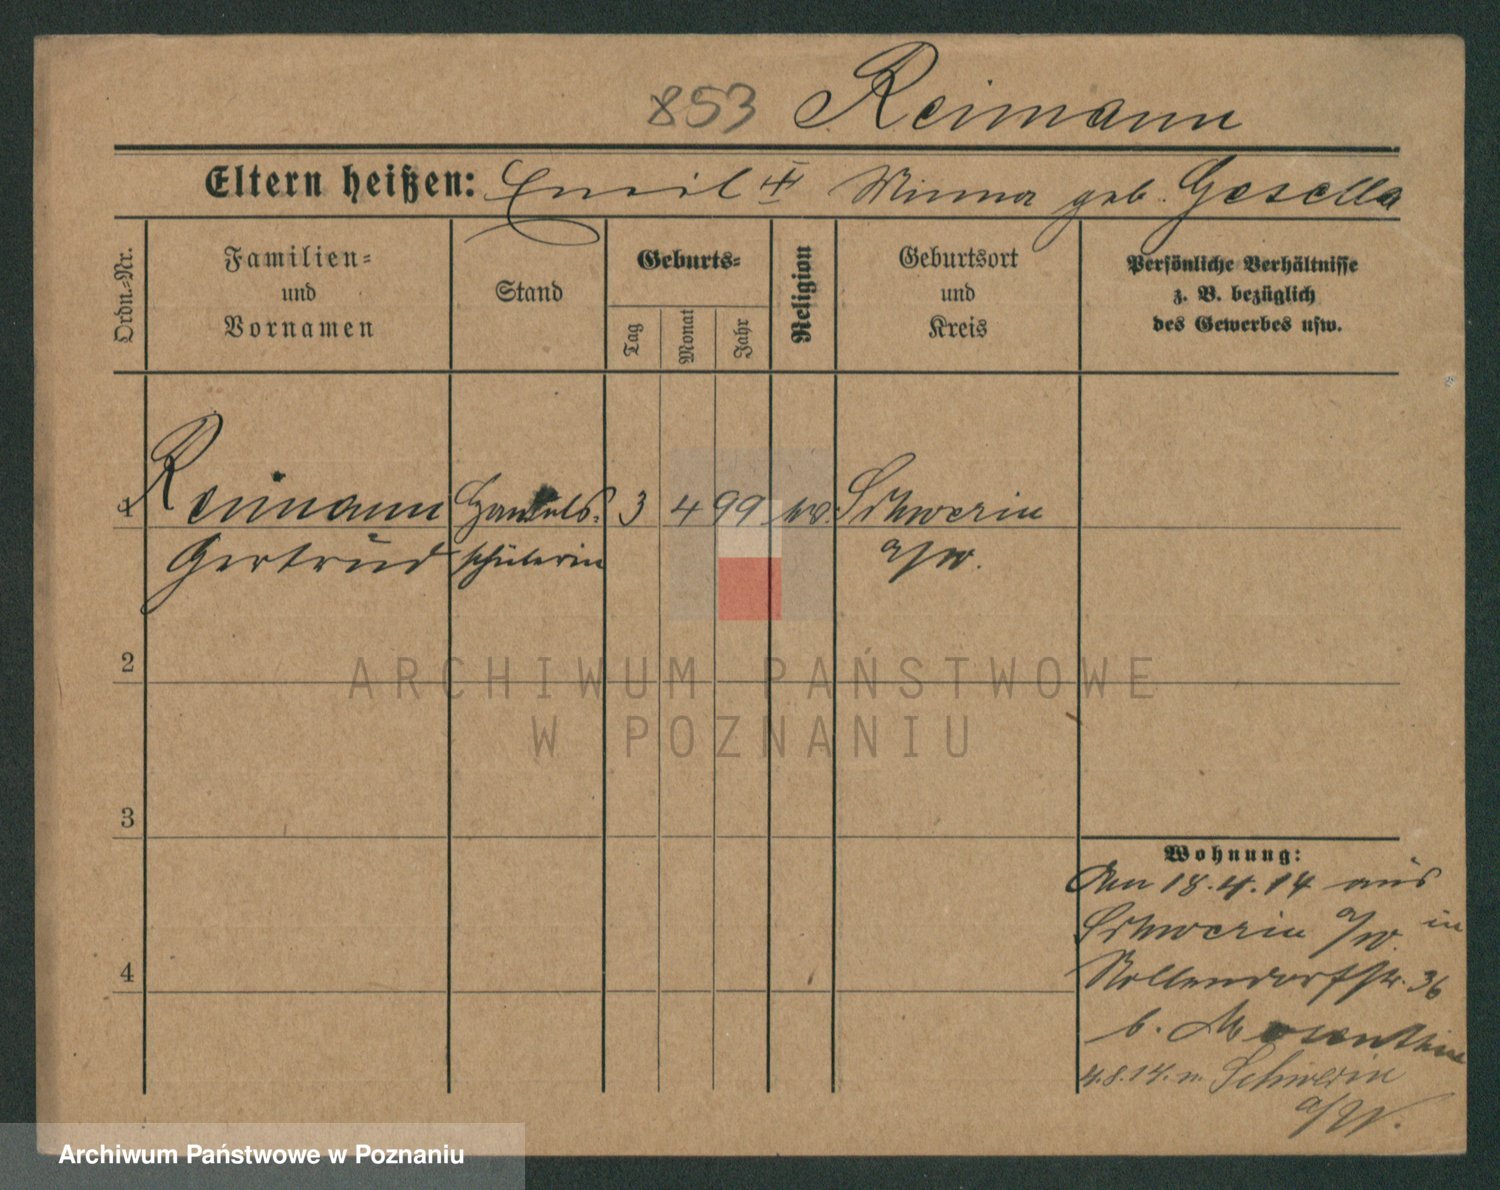 853 Reimann
Eltern heißen: Emil Minna geb. Gesella
Ordn.-Nr.
Familien-
und
Vornamen
Stand
Geburts-
Tag
Monat
Jahr
Religion
Geburtsort
und
Kreis
Persönliche Verhältnisse
z. B. bezüglich
des Gewerbes usw.
1 Reimann Handels- 3 4 99 Schwerin
Gertrud schülerin a/W.
2
3
4
ARCHIWUM PAŃSTWOWE
W POZNANIU
Wohnung:
Den 18.4.14 aus
Schwerin a/W. in
Nollendorfstr. 36
b.
4.8.14. n. Schwerin
a/W.
Archiwum Państwowe w Poznaniu